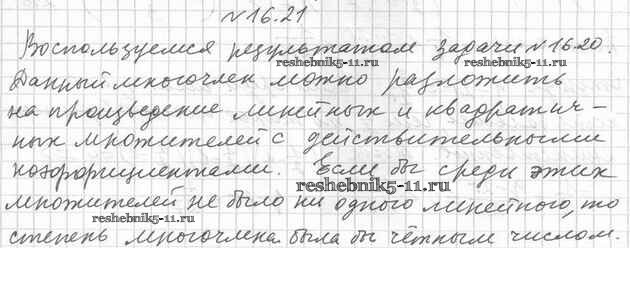 №16.21
Воспользуемся результатом задачи №16.20.
reshebnik5-11.ru
reshebnik5-11.ru
Данный многочлен можно разложить
на произведение линейных и квадратич-
ных множителей с действительными
коэффициентами. Если бы среди этих
reshebnik5-11.ru
множителей не было ни одного линейного, то
reshebnik5-11.ru
степень многочлена была бы чётным числом.